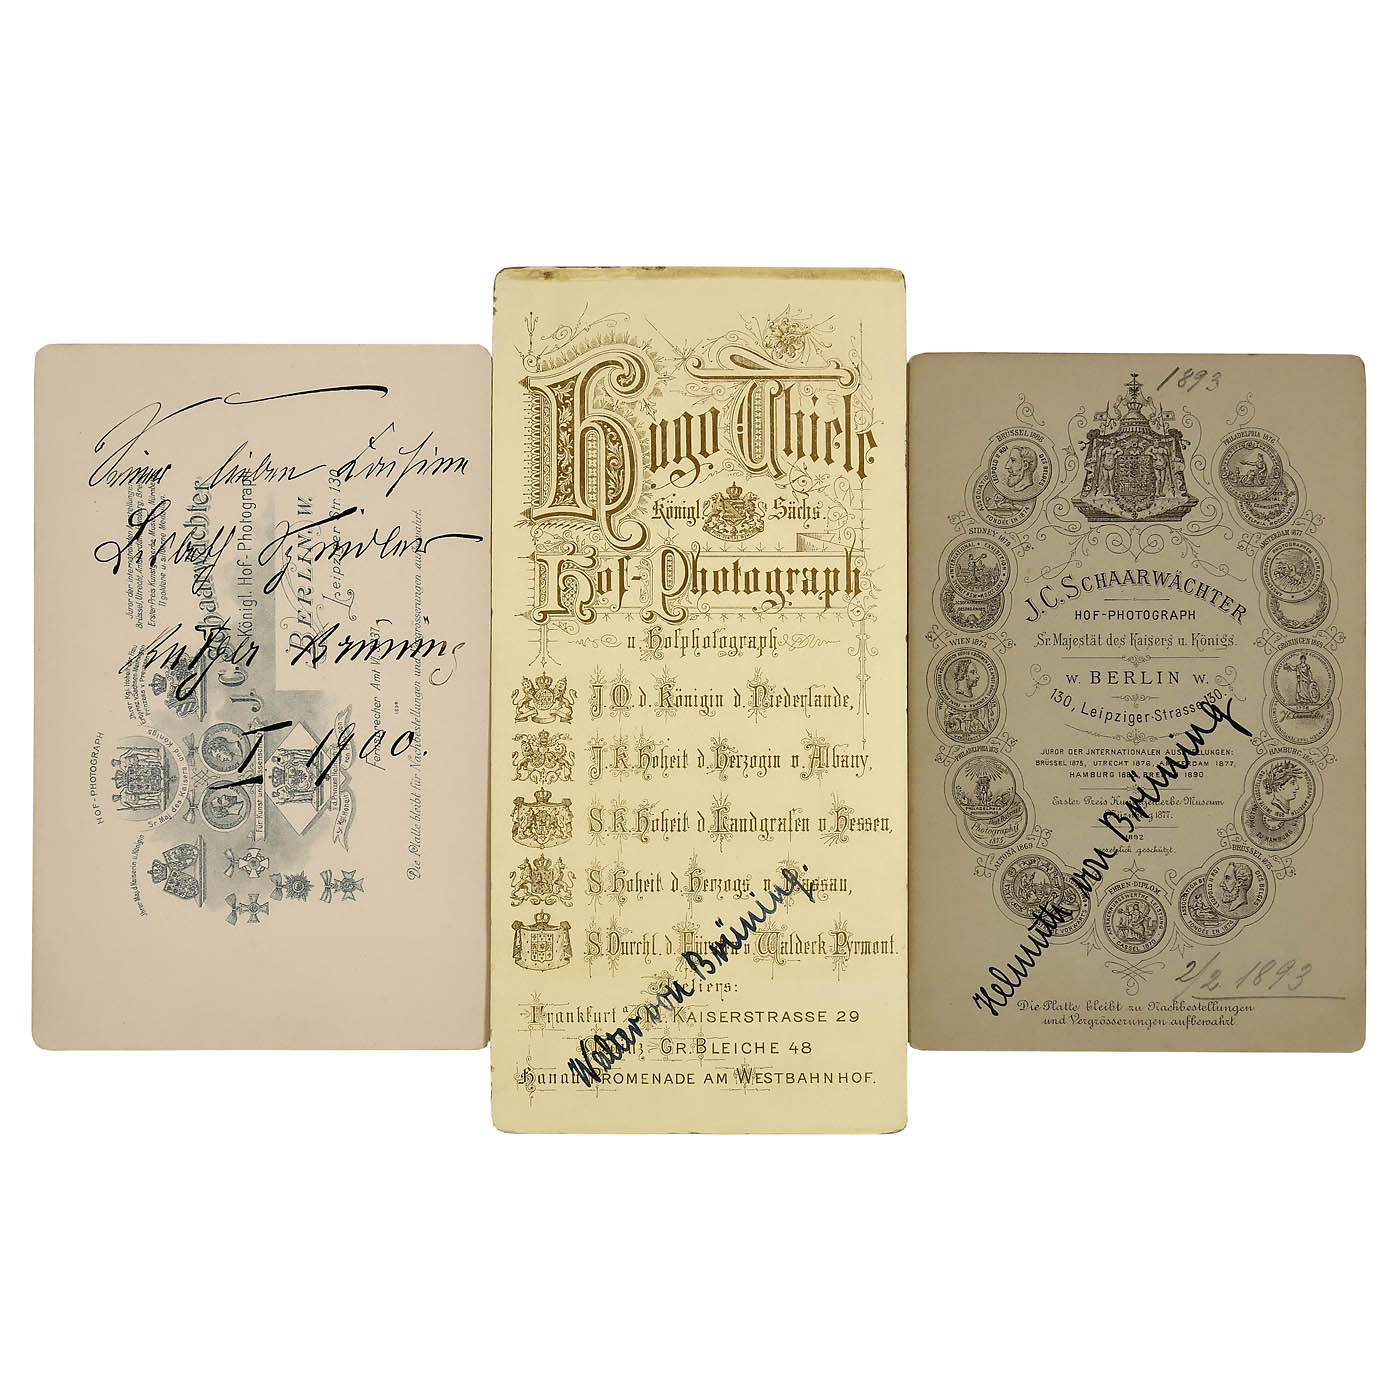 Seiner lieben Cousine
Lisbeth Spindler
Rüdger Brüning
I 1900.
J. C. Schaarwächter
Königl. Hof-Photograph
BERLIN, W.
Leipziger Str. 130
Fernsprecher Amt
Die Platte bleibt für Nachbestellungen und Vergrösserungen aufbewahrt.
HOF-PHOTOGRAPH
Sr. Maj. des Kaisers und Königs
Für Kunst und Wissenschaft
Hugo Thiele
Königl. Sächs.
Hof-Photograph
u. Hofphotograph
J. M. d. Königin d. Niederlande,
J. K. Hoheit d. Herzogin v. Albany,
S. K. Hoheit d. Landgrafen v. Hessen,
S. Hoheit d. Herzogs v. Nassau,
S. Durchl. d. Fürsten v. Waldeck Pyrmont.
Ateliers:
Frankfurt a. M. KAISERSTRASSE 29
Mainz. GR. BLEICHE 48
Hanau PROMENADE AM WESTBAHNHOF.
Walter von Brüning.
1893
BRÜSSEL 1886
PHILADELPHIA 1876
SIDNEY 1879
AMSTERDAM 1877
WIEN 1873
GRONINGEN 1869
PHILADELPHIA 1875
HAMBURG
ALTONA 1869
EHREN-DIPLOM
CASSEL 1870
J. C. SCHAARWÄCHTER
HOF-PHOTOGRAPH
Sr. Majestät des Kaisers u. Königs.
W. BERLIN W.
130, Leipziger-Strasse 130.
JUROR DER INTERNATIONALEN AUSSTELLUNGEN:
BRÜSSEL 1875, UTRECHT 1876, AMSTERDAM 1877,
HAMBURG BREMEN 1890
Erster Preis Kunstgewerbe Museum
Nürnberg 1877.
1892
gesetzlich geschützt.
Helmuth von Brüning
2/2. 1893
Die Platte bleibt zu Nachbestellungen
und Vergrösserungen aufbewahrt.